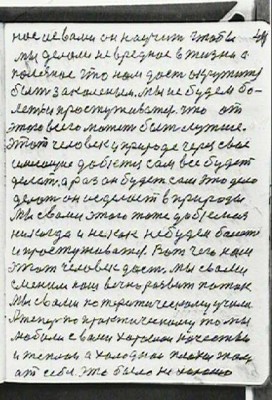 ное с вами он научит чтобы
мы делали не вредное в жизни а
полезное что нам даст окружит
быть закаленым. Мы не будем бо-
леть и простуживатся. что от
этого всего может быть лучше.
Этот человек у природе через свое
добется сам все будет
делат, а раз он будет сам это дело
делат он сделает в природе
Мы с вами этого тоже добемся
никогда и некак не будем болеть
и простуживатся. Вот чего нам
этот человек даст. Мы с вами
сменим наш вечно развит поток
Мы с вами по теоретическому учили
А теперь по практическому то мы
любили с вами хорошом качестве
и теплом а холодном плохом гнали
от себя. Это было не хорошо